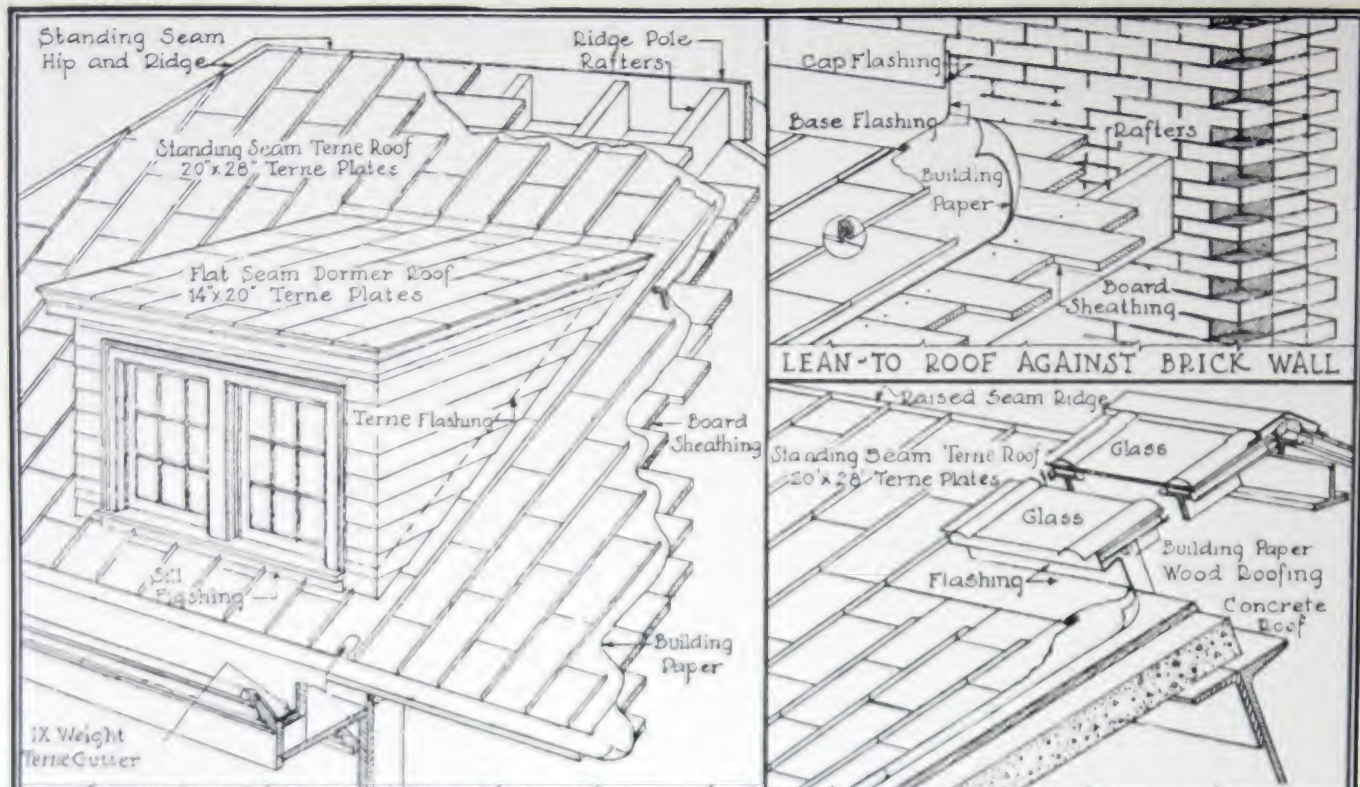 Standing Seam
Hip and Ridge
Ridge Pole
Rafters
Standing Seam Terne Roof
20"x28" Terne Plates
Flat Seam Dormer Roof
14"x20" Terne Plates
Terne Flashing
Board
Sheathing
Sill
Flashing
Building
Paper
IX Weight
Terne Gutter
Cap Flashing
Base Flashing
Rafters
Building
Paper
Board
Sheathing
LEAN-TO ROOF AGAINST BRICK WALL
Raised Seam Ridge
Standing Seam Terne Roof
20"x28" Terne Plates
Glass
Glass
Building Paper
Wood Roofing
Flashing
Concrete
Roof